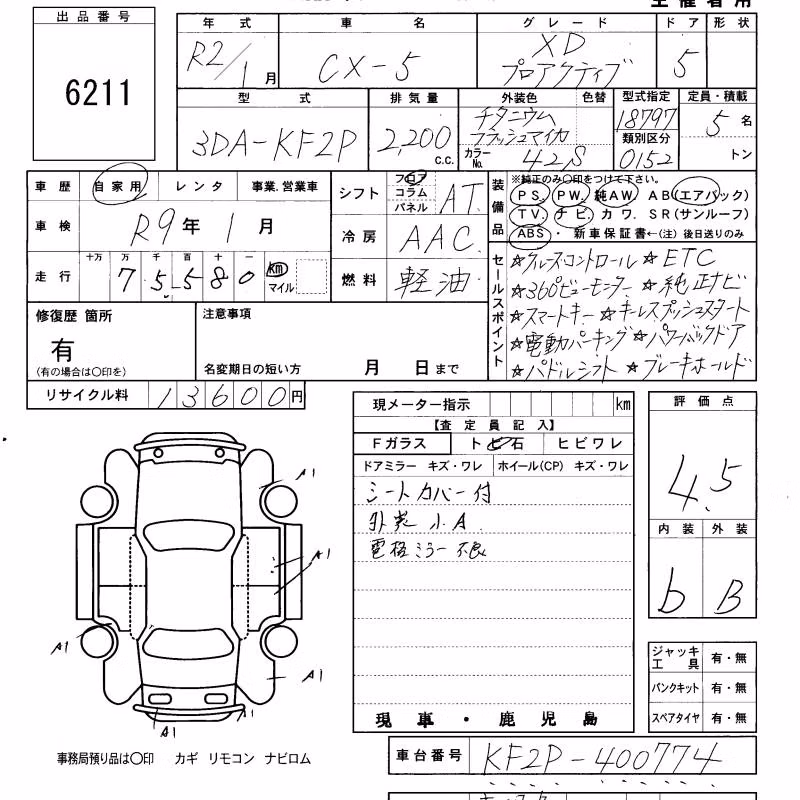 出品番号
6211
年式 車名 グレード ドア 形状
R2/1月 CX-5 XD プロアクティブ 5
型式 排気量 外装色 色替 型式指定 定員・積載
3DA-KF2P 2,200 c.c. チタニウム フラッシュマイカ 18797 5名
カラーNo. 42S 類別区分 0152 トン
車歴 自家用 レンタ 事業.営業車
車検 R9年 1月
走行 十万 万 千 百 十 一
75580 km マイル
シフト フロア コラム パネル AT
冷房 AAC
燃料 軽油
装備品
※純正のみ〇印をつけて下さい。
PS. PW. 純AW AB(エアバック)
TV. ナビ. カワ. SR(サンルーフ)
ABS・新車保証書←(注)後日送りのみ
セールスポイント
☆クルーズコントロール ☆ETC
☆360°ビューモニター ☆純正ナビ
☆スマートキー ☆キーレスプッシュスタート
☆電動パーキング ☆パワーバックドア
☆パドルシフト ☆ブレーキホールド
修復歴 箇所
有
(有の場合は〇印を)
注意事項
名変期日の短い方 月 日まで
リサイクル料 13600円
現メーター指示 km
【査定員記入】
Fガラス トビ石 ヒビワレ
ドアミラー キズ・ワレ ホイール(CP) キズ・ワレ
シートカバー付
外装 小A
電格ミラー不良
現車・鹿児島
評価点
4.5
内装 外装
b B
ジャッキ工具 有・無
パンクキット 有・無
スペアタイヤ 有・無
A1
A1
A1
A1
A1
A1
事務局預り品は〇印 カギ リモコン ナビロム
車台番号 KF2P-400774